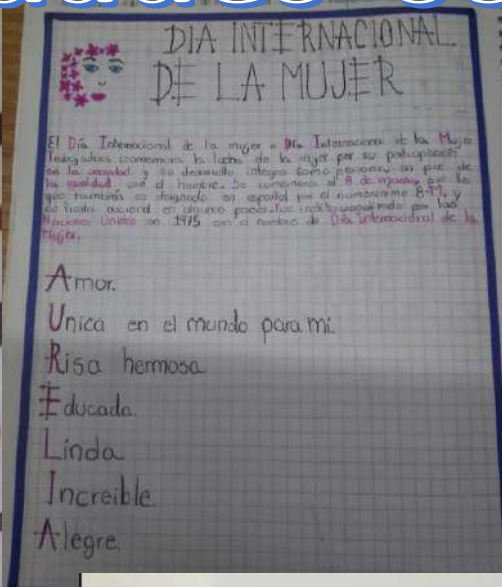 DIA INTERNACIONAL
DE LA MUJER
El Día Internacional de la mujer o Día Internacional de la Mujer
Trabajadora conmemora la lucha de la mujer por su participación
en la sociedad y su desarrollo íntegro como persona, en pie de
la igualdad con el hombre. Se conmemora el 8 de marzo, por lo
que también es designado en español por el numerónimo 8-M, y
es fiesta nacional en algunos países. Fue institucionalizado por las
Naciones Unidas en 1975 con el nombre de Día Internacional de la
Mujer.
Amor.
Única en el mundo para mi.
Risa hermosa
Educada.
Linda
Increible
Alegre.